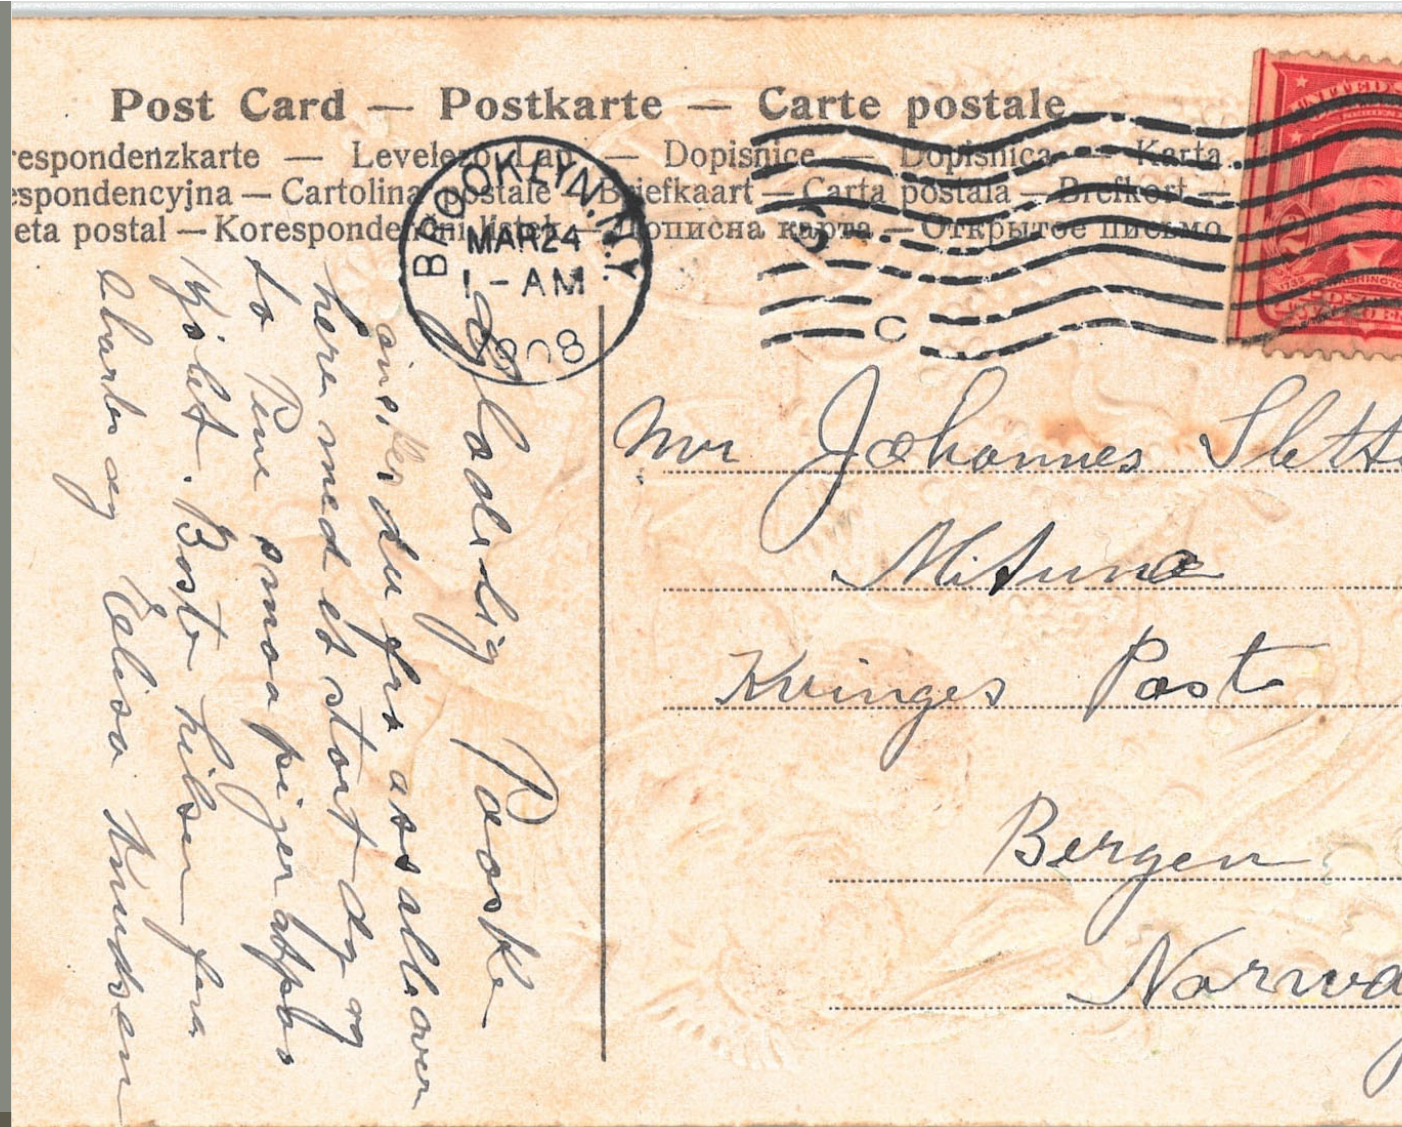 Post Card — Postkarte — Carte postale
respondenzkarte — Levelező Lap — Dopisnice — Dopisnica — Karta
espondencyjna — Cartolina postale — Briefkaart — Carta postala — Brefkort —
eta postal — Korespondenční lístek — Дописна карта — Открытое письмо
BROOKLYN, N.Y.
MAR 24
1 - AM
1908
C
UNITED
2
WASHINGTON
Mr Johannes Slett
Mituna
Kvinges Post
Bergen
Norway
Glædelig Paaske
ønskes du fra oss alle over
here med et stort dg og
to Pene smaa piger oppaa
Kjølet. Beste hilsen fra
Charles og Eelisa Knudsen